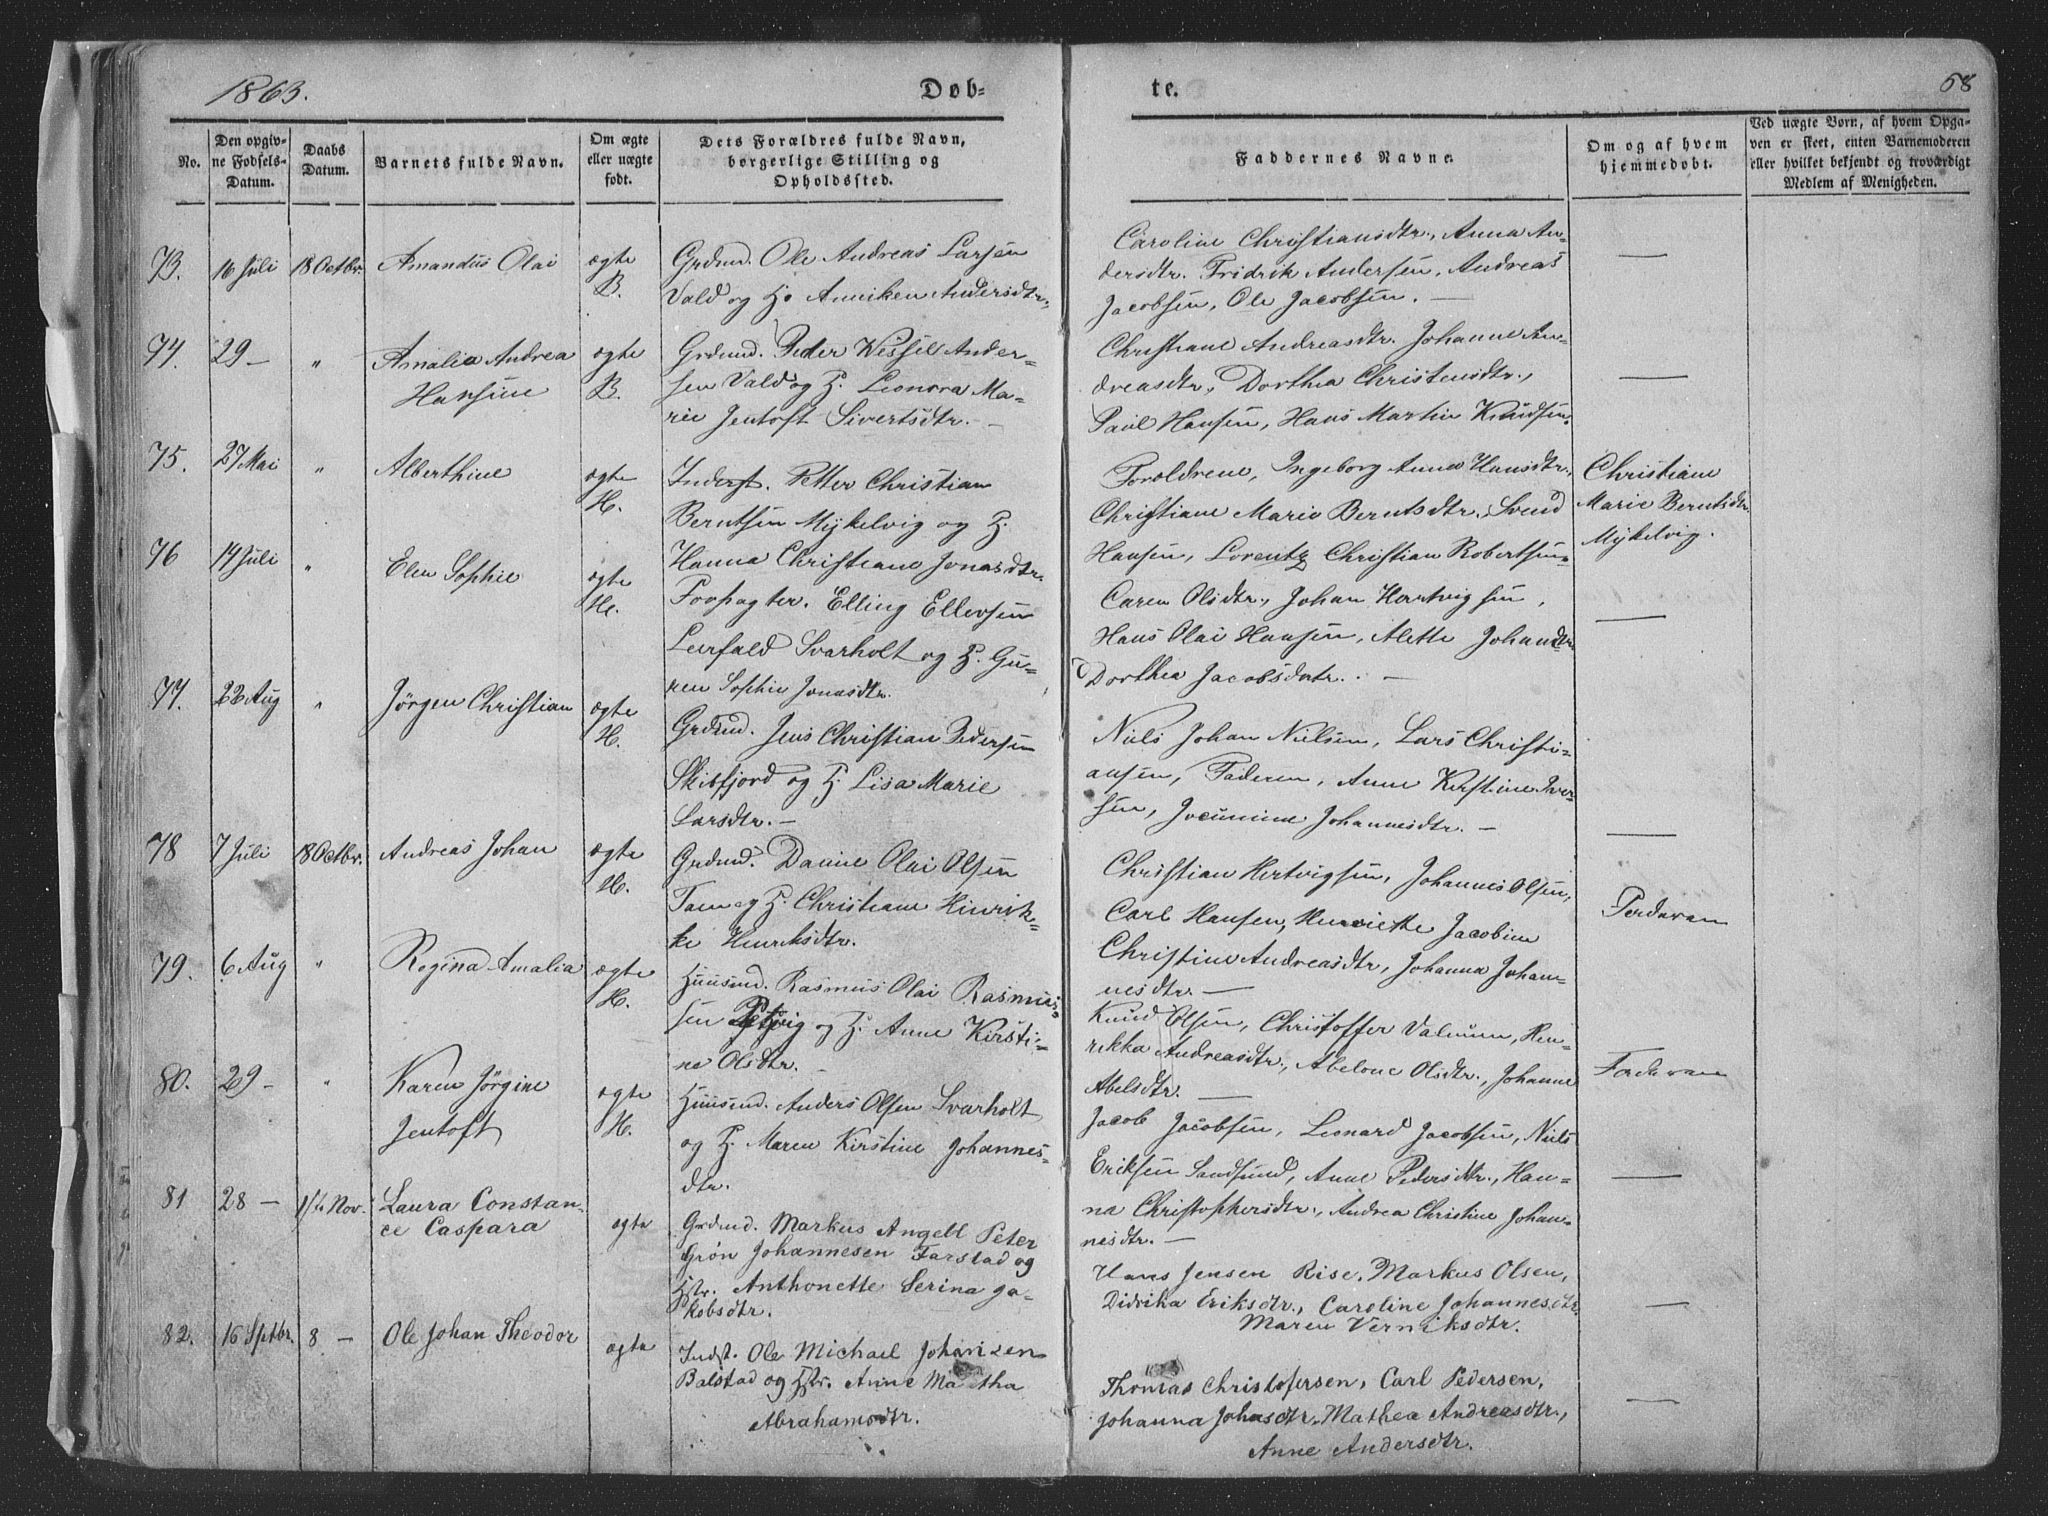 1863.
Døb-
te.
58
No.
Den opgiv-
ne Fødsels-
Datum.
Daabs
Datum.
Barnets fulde Navn.
Om ægte
eller uægte
født.
Dets Forældres fulde Navn,
borgerlige Stilling og
Opholdssted.
Faddernes Navne.
Om og af hvem
hjemmedøbt.
Ved uægte Børn, af hvem Opga-
ven er skeet, enten Barnemoderen
eller hvilket bekjendt og troværdigt
Medlem af Menigheden.
73. 16 Juli 18 Octbr. Amandus Olai ægte
B.
Grdmd. Ole Andreas Larsen
Vald og H. Anniken Andersdtr.
Caroline Christiansdtr., Anna An-
dersdtr. Fridrik Andersen, Andreas
Jacobsen, Ole Jacobsen. —
74. 29 — " Amalia Andrea
Hansine
ægte
B.
Grdmd. Peder Wessel Ander-
sen Vald og H. Leonora Ma-
rie Jentoft Sivertsdtr. —
Christiane Andreasdtr. Johanne An-
dreasdtr., Dorthea Christensdtr.,
Paul Hansen, Hans Martin Knudsen.
75. 27 Mai " Alberthine
ægte
H.
Inderst. Petter Christian
Berntsen Mykelvig og H.
Hanna Christiane Jonasdtr.
Forældrene, Ingeborg Anna Hansdtr.,
Christiane Marie Berntsdtr., Svend
Hansen, Lorentz Christian Robertsen.
Christiane
Marie Berntsdtr.
Mykelvig.
76 14 Juli " Elen Sophie
ægte
H.
Forpagter. Elling Ellevsen
Leirfald Svarholt og H. Gu-
ren Sophie Jonasdtr.
Caren Olsdtr., Johan Hertvigsen,
Hans Olai Hansen, Alette Johansdtr.
Dorthea Jacobsdatr. —
77. 22 Aug " Jörgen Christian ægte
H.
Grdmd. Jens Christian Pedersen
Skibfjord og H. Lisa Marie
Larsdtr. —
Niels Johan Nielsen, Lars Christi-
ansen, Faderen, Anne Kirstine Iver-
sen, Jocumine Johannesdtr. —
78 7 Juli 18 Octbr. Andreas Johan ægte
H.
Grdmd. Daniel Olai Olsen
og H. Christiane Hinrik-
ke Henriksdtr.
Christian Hertvigsen, Johannes Olsen,
Carl Hansen, Henriette Jacobine
Christine Andreasdtr, Johanna Johan-
nesdtr. —
79. 6 Aug " Regina Amalia ægte
H.
Huusmd. Rasmus Olai Rasmus-
sen og H. Anne Kirsti-
ne Olsdtr. —
Knud Olsen, Christoffer Valnum, Hen-
rikka Andreasdtr., Abelone Olsdtr., Johanne
Abelsdtr. —
80. 29 — " Karen Jörgine
Jentoft
ægte
H.
Huusmd. Anders Olsen Svarholt
og H. Maren Kirstine Johannes-
dtr.
Jacob Jacobsen, Leonard Jacobsen, Niels
Eriksen Sandsund, Anne Pedersdtr., Han-
na Christophersdtr., Andrea Christine Johan-
nesdtr. —
81 28 — 1ste Nov. Laura Constan-
ce Caspara
ægte
Grdmd. Markus Angell Peter
Grøn Johannesen Farstad og
Hstr. Anthonette Serina Ja-
kobsdtr.
Hans Jensen Rise, Markus Olsen,
Didrika Eriksdtr., Caroline Johannesdtr.
Maren Verniksdtr.
82. 16 Sptbr. 8 — Ole Johan Theodor
ægte
Indst. Ole Michael Johansen
Balstad og Hstr. Anne Martha
Abrahamsdtr.
Thomas Christofersen, Carl Pedersen,
Johanna Johasdtr. Mathea Andreasdtr.,
Anne Andersdtr.